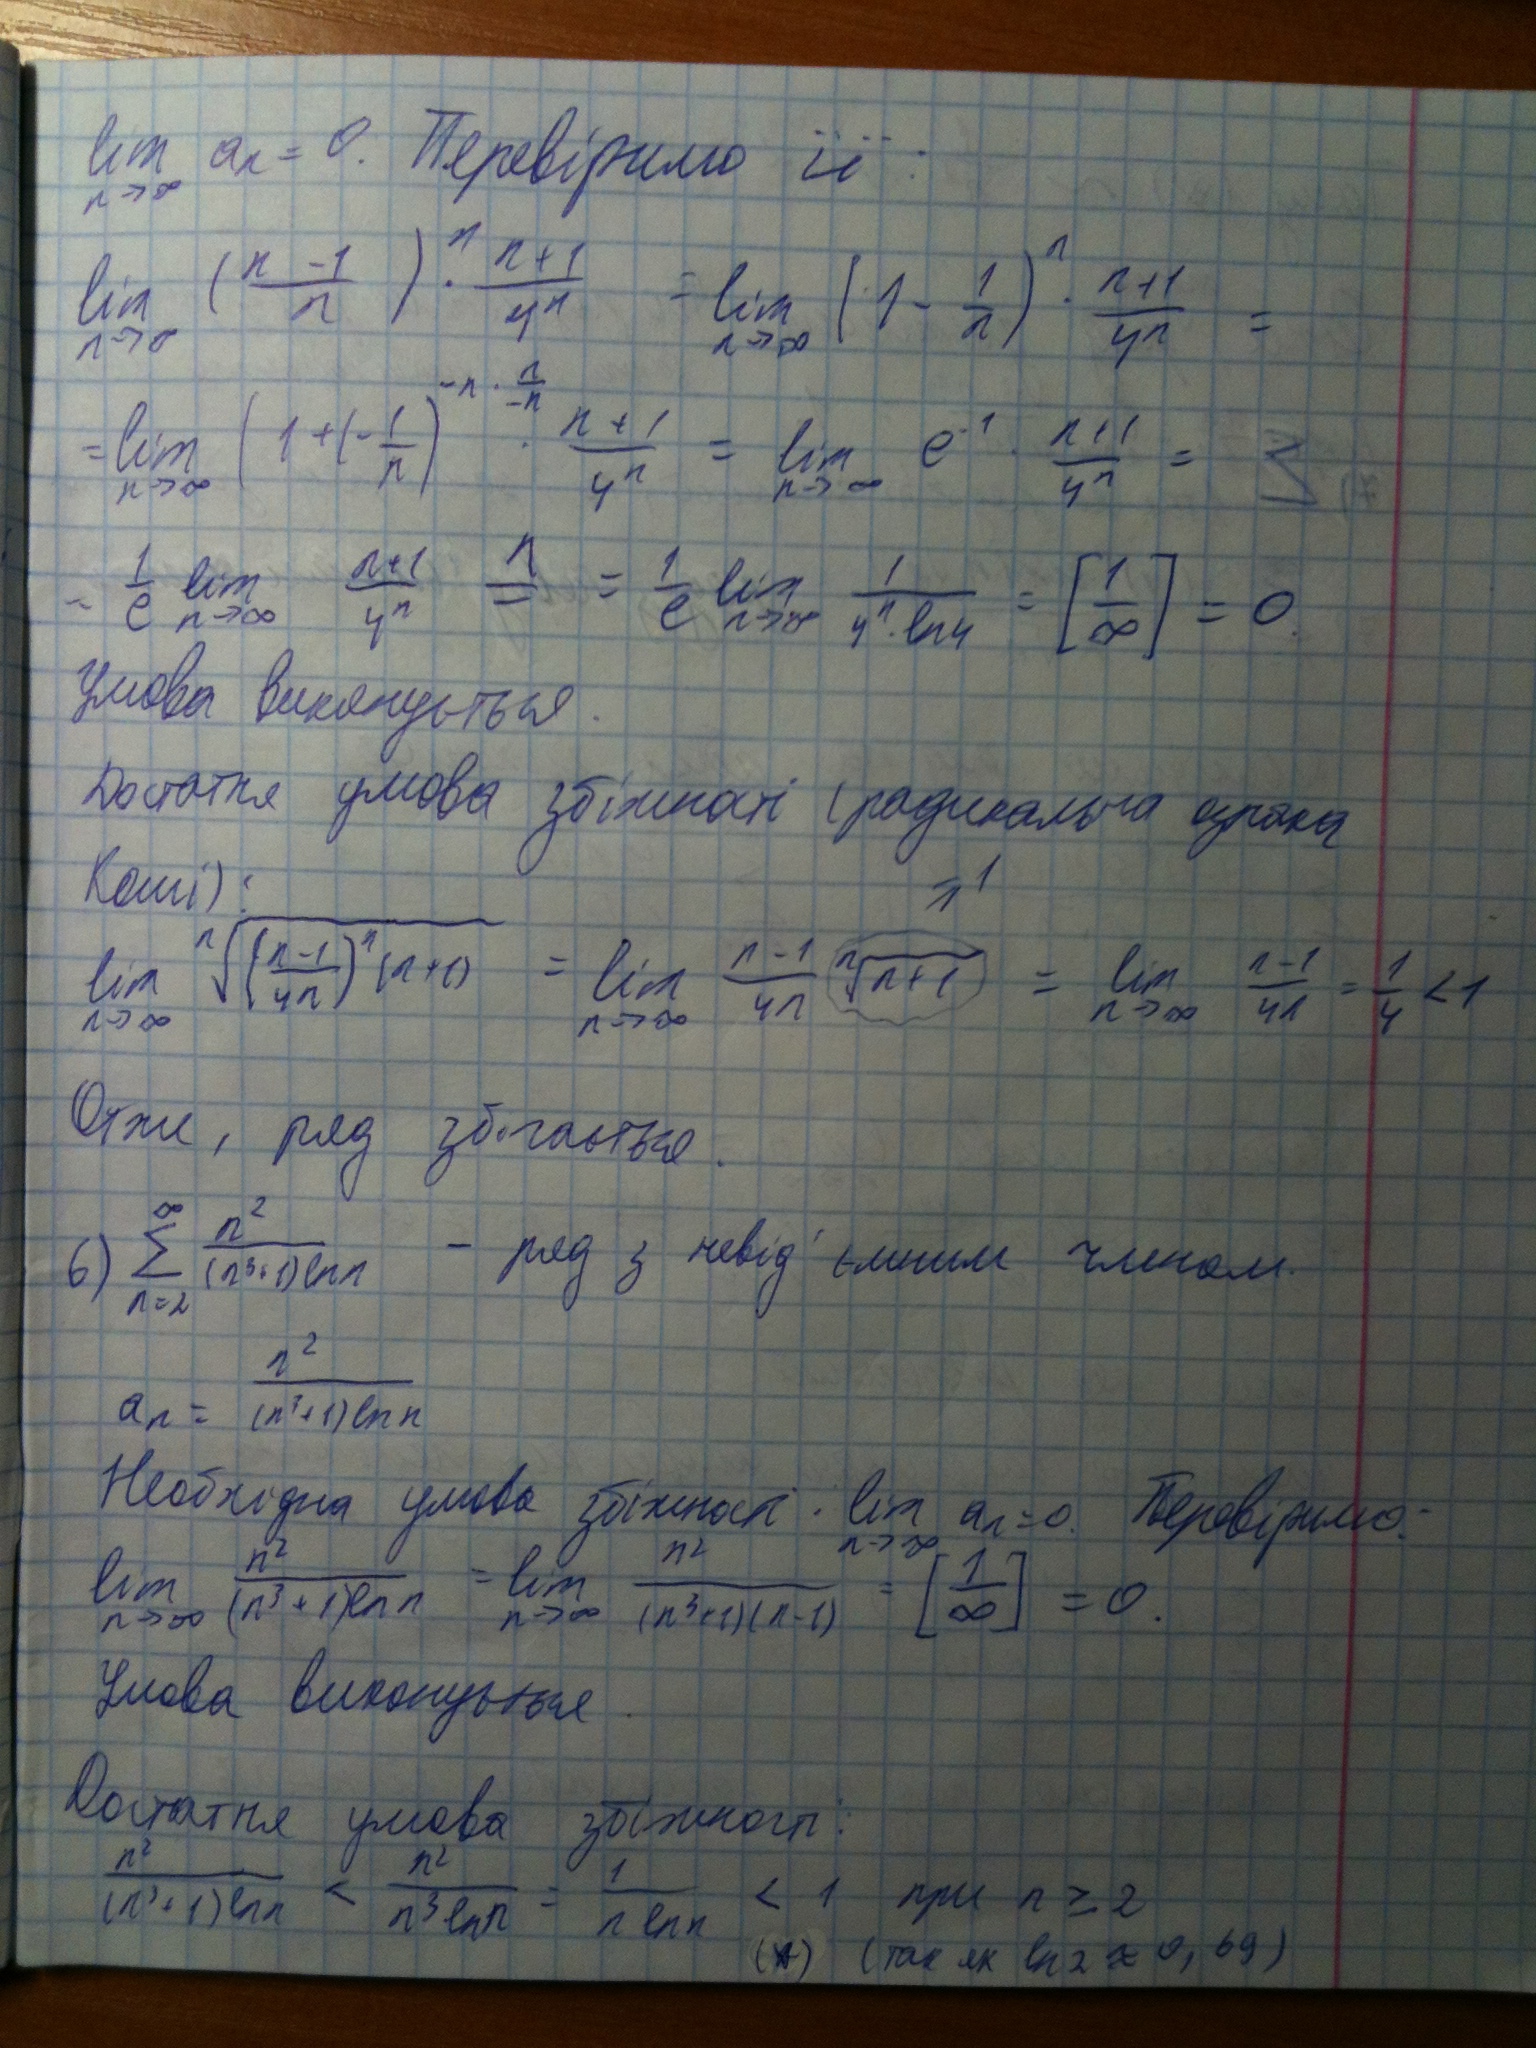 lim n→∞ aₙ = 0. Перевіримо її:
lim n→∞ ((n-1)/n)ⁿ · (n+1)/4ⁿ = lim n→∞ (1 - 1/n)ⁿ · (n+1)/4ⁿ =
= lim n→∞ (1 + (-1/n)^(-n · n/-n) · (n+1)/4ⁿ = lim n→∞ e⁻¹ · (n+1)/4ⁿ =
= 1/e lim n→∞ (n+1)/4ⁿ =Л= 1/e lim n→∞ 1/(4ⁿ · ln4) = [1/∞] = 0.
Умова виконується.
Достатня умова збіжності (радикальна ознака
Коші):
lim n→∞ ⁿ√(((n-1)/4n)ⁿ (n+1)) = lim n→∞ (n-1)/4n ⁿ√(n+1) →1 = lim n→∞ (n-1)/4n = 1/4 < 1
Отже, ряд збігається.
6) ∞ Σ n=2 n²/((n³+1) ln n) - ряд з невід'ємним членом.
aₙ = n²/((n³+1) ln n)
Необхідна умова збіжності: lim n→∞ aₙ = 0. Перевіримо:
lim n→∞ n²/((n³+1) ln n) = lim n→∞ n²/((n³+1)(n-1)) = [1/∞] = 0.
Умова виконується.
Достатня умова збіжності:
n²/((n³+1) ln n) < n²/(n³ ln n) = 1/(n ln n) < 1 при n ≥ 2
(*) (так як ln 2 ≈ 0,69)